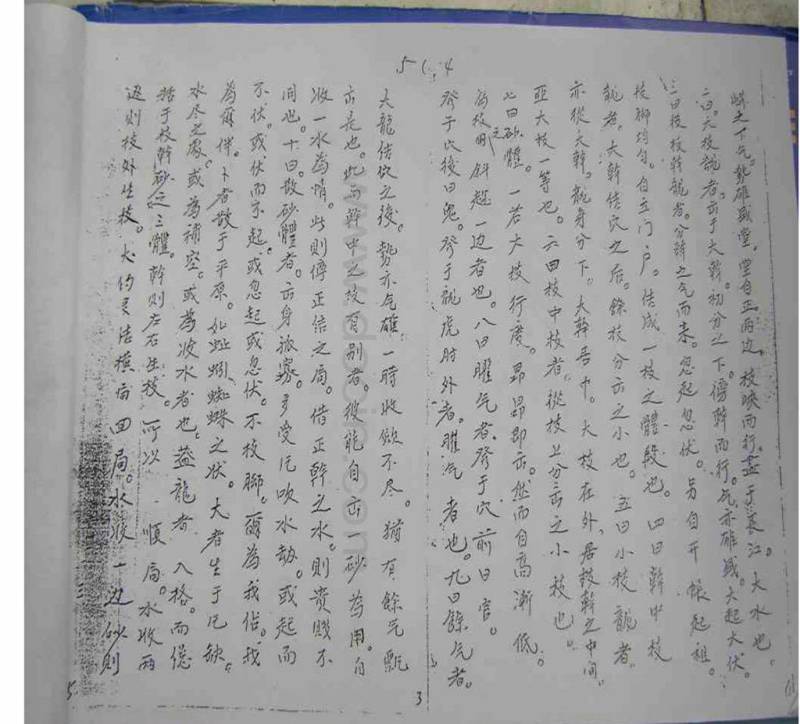 51.4
嶂之下气。貌雄盛堂。堂自正。两边。枝峡而行。盡于長江。大水也。
二曰。大枝龍者。出于大幹。初分之下。傍幹而行。气亦雄盛。大起大伏。
三曰枝枝幹龍者。分幹之气而来。忽起忽伏。另自开帳起祖。
枝脚均匀。自立门户。结成一枝之體段也。四曰幹中枝
龍者。大幹结穴之后。餘枝分出之小也。五曰小枝龍者
亦從大幹。龍身分下。大幹居中。大枝在外。居枝幹之中间。
亚大枝一等也。六曰枝中枝者。從枝上分出之小枝也。
七曰砂體。一若大枝行度。昂昂即出。然而自高漸低。
斜趨一边者也。八曰曜气者。發于穴前曰官。
發于穴後曰鬼。發于龍虎肘外者。曜气者也。九曰餘气者。
大龍结穴之後。勢亦气雄。一時收斂不尽。猶有餘气飘
亦是也。此与幹中之枝有别者。彼能自出一砂為用。自
收一水為情。此則傳正结之局。借正幹之水。則贵贱不
同也。十曰。散砂體者。出身孤寡。多受风吹水劫。或起而
不伏。或伏而不起。或忽起或忽伏。不枝脚。爾為我占。我
為爾伴。卜者散于平原。如蚯蚓、蜘蛛之状。大者生于凡缺。
水尽之處。或為補空。或為收水者也。蓋龍者入格。而總
括于枝幹砂之三體。幹則左右生枝。可以順局。水收两
逕則枝外生枝。大约灵活横局回局。水收一边砂則
3
5